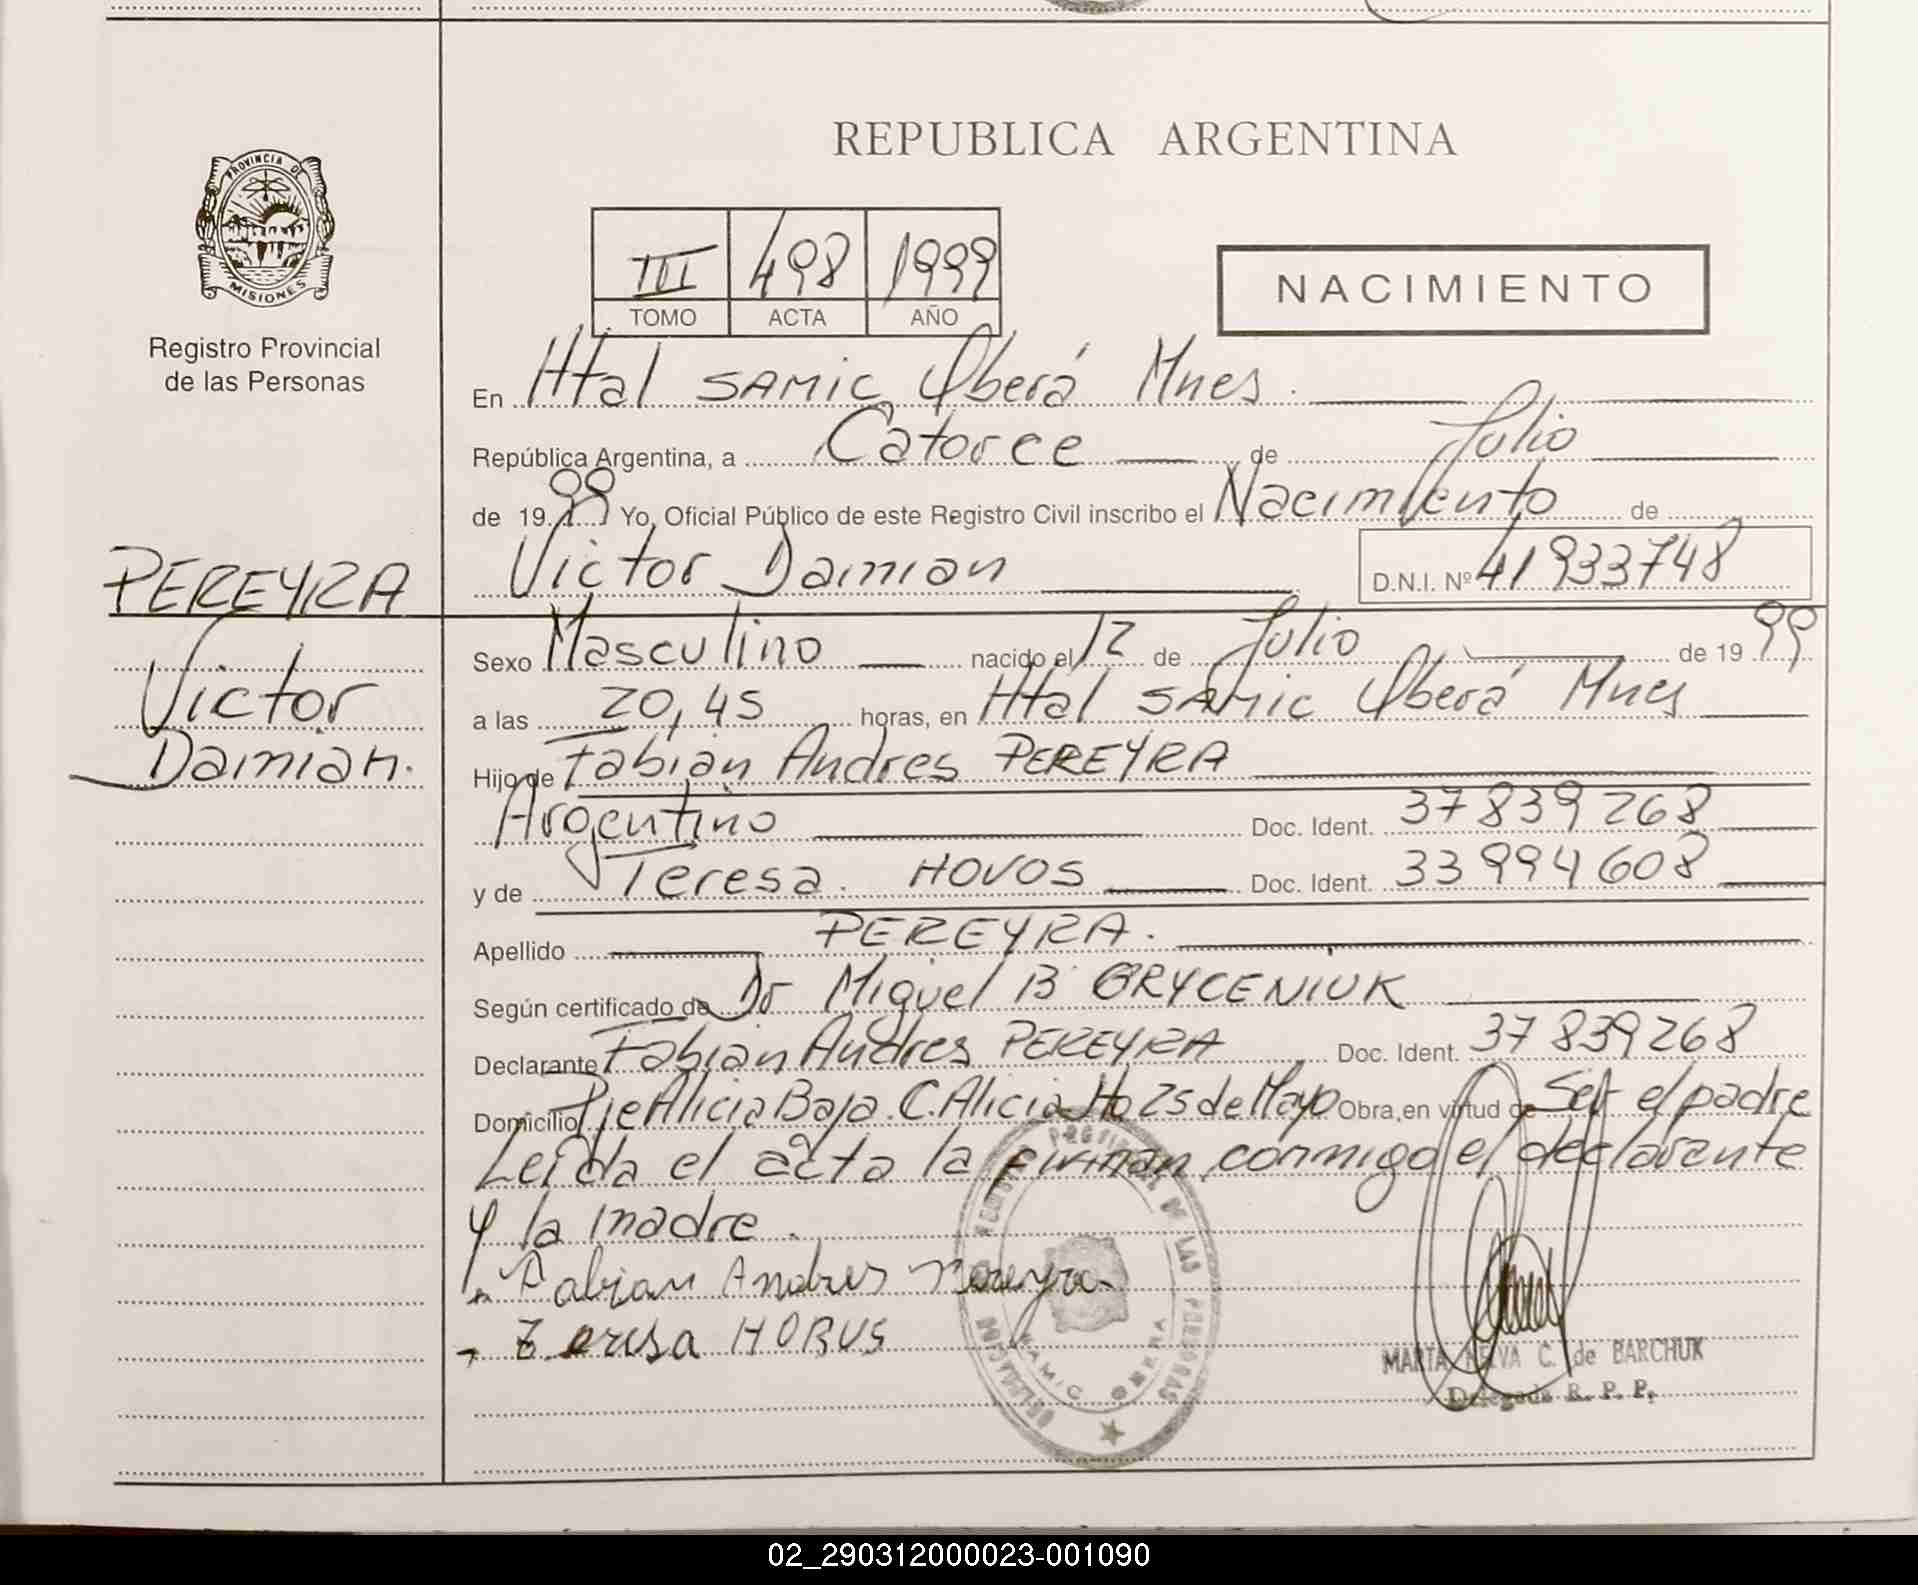 REPUBLICA ARGENTINA
PROVINCIA DE
MISIONES
Registro Provincial
de las Personas
III 498 1999
TOMO ACTA AÑO
NACIMIENTO
En Htal SAMIC Oberá Mnes.
República Argentina, a Catorce de Julio
de 1999 Yo, Oficial Público de este Registro Civil inscribo el Nacimiento de
Victor Damian D.N.I. Nº 41933748
PEREYRA
Victor
Damian.
Sexo Masculino nacido el 12 de Julio de 1999
a las 20,45 horas, en Htal SAMIC Oberá Mnes
Hijo de Fabian Andres PEREYRA
Argentino Doc. Ident. 37839268
y de Teresa. HOVOS Doc. Ident. 33994608
Apellido PEREYRA.
Según certificado de Dr Miguel B GRYCENIUK
Declarante Fabian Andres PEREYRA Doc. Ident. 37839268
Domicilio Pje Alicia Baja. C. Alicia Ho 25 de Mayo Obra en virtud de Ser el padre
Leida el acta la firman conmigo el declarante
y la madre.
Fabian Andres Pereyra
Teresa HOBUS
PROVINCIAL DE LAS PERSONAS
SAMIC OBERA
MARTA NELVA C. de BARCHUK
Delegada R. P. P.
02_290312000023-001090